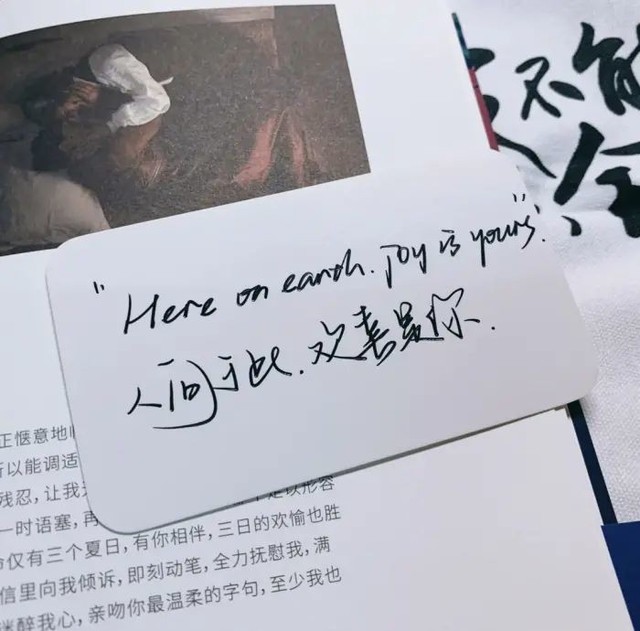 不能
"Here on earth. joy is yours".
人间于此. 欢喜是你.
正惬意地
所以能调适
残忍,让我 足以形容
一时语塞,再
仅有三个夏日,有你相伴,三日的欢愉也胜
信里向我倾诉,即刻动笔,全力抚慰我,满
迷醉我心,亲吻你最温柔的字句,至少我也